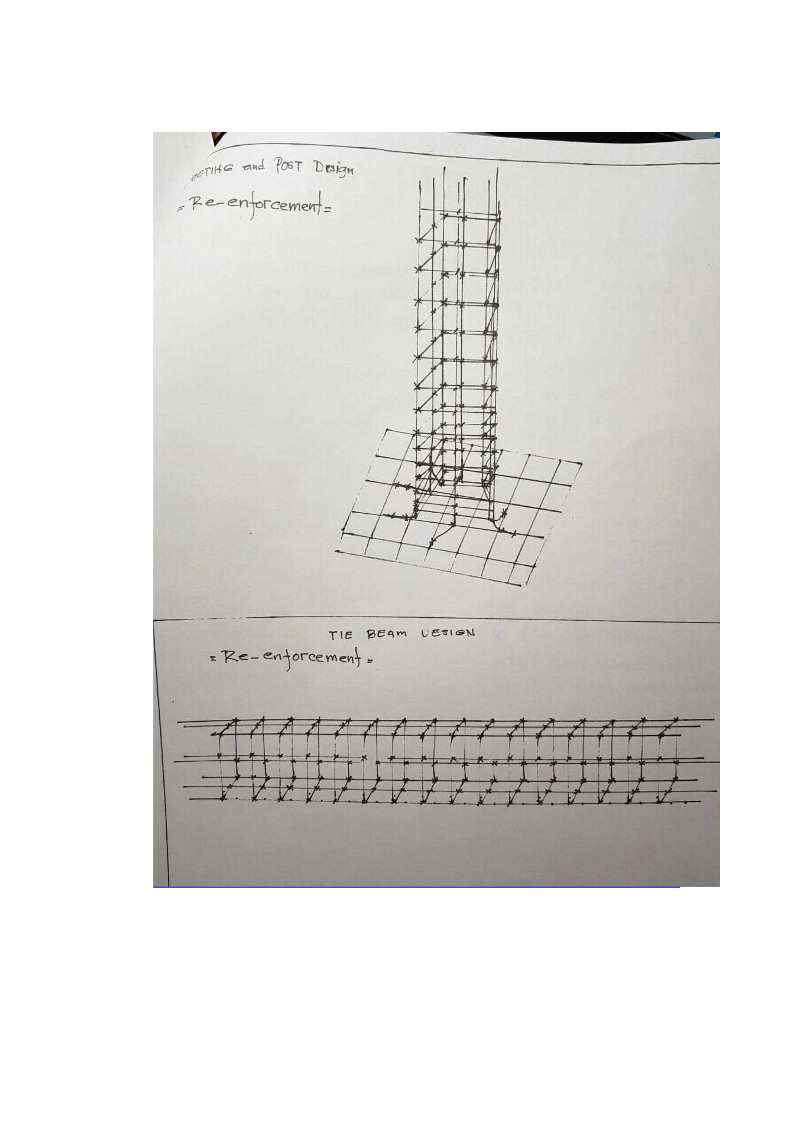 OOTING and POST Design
= Re-enforcement =
TIE BEAM DESIGN
= Re-enforcement =